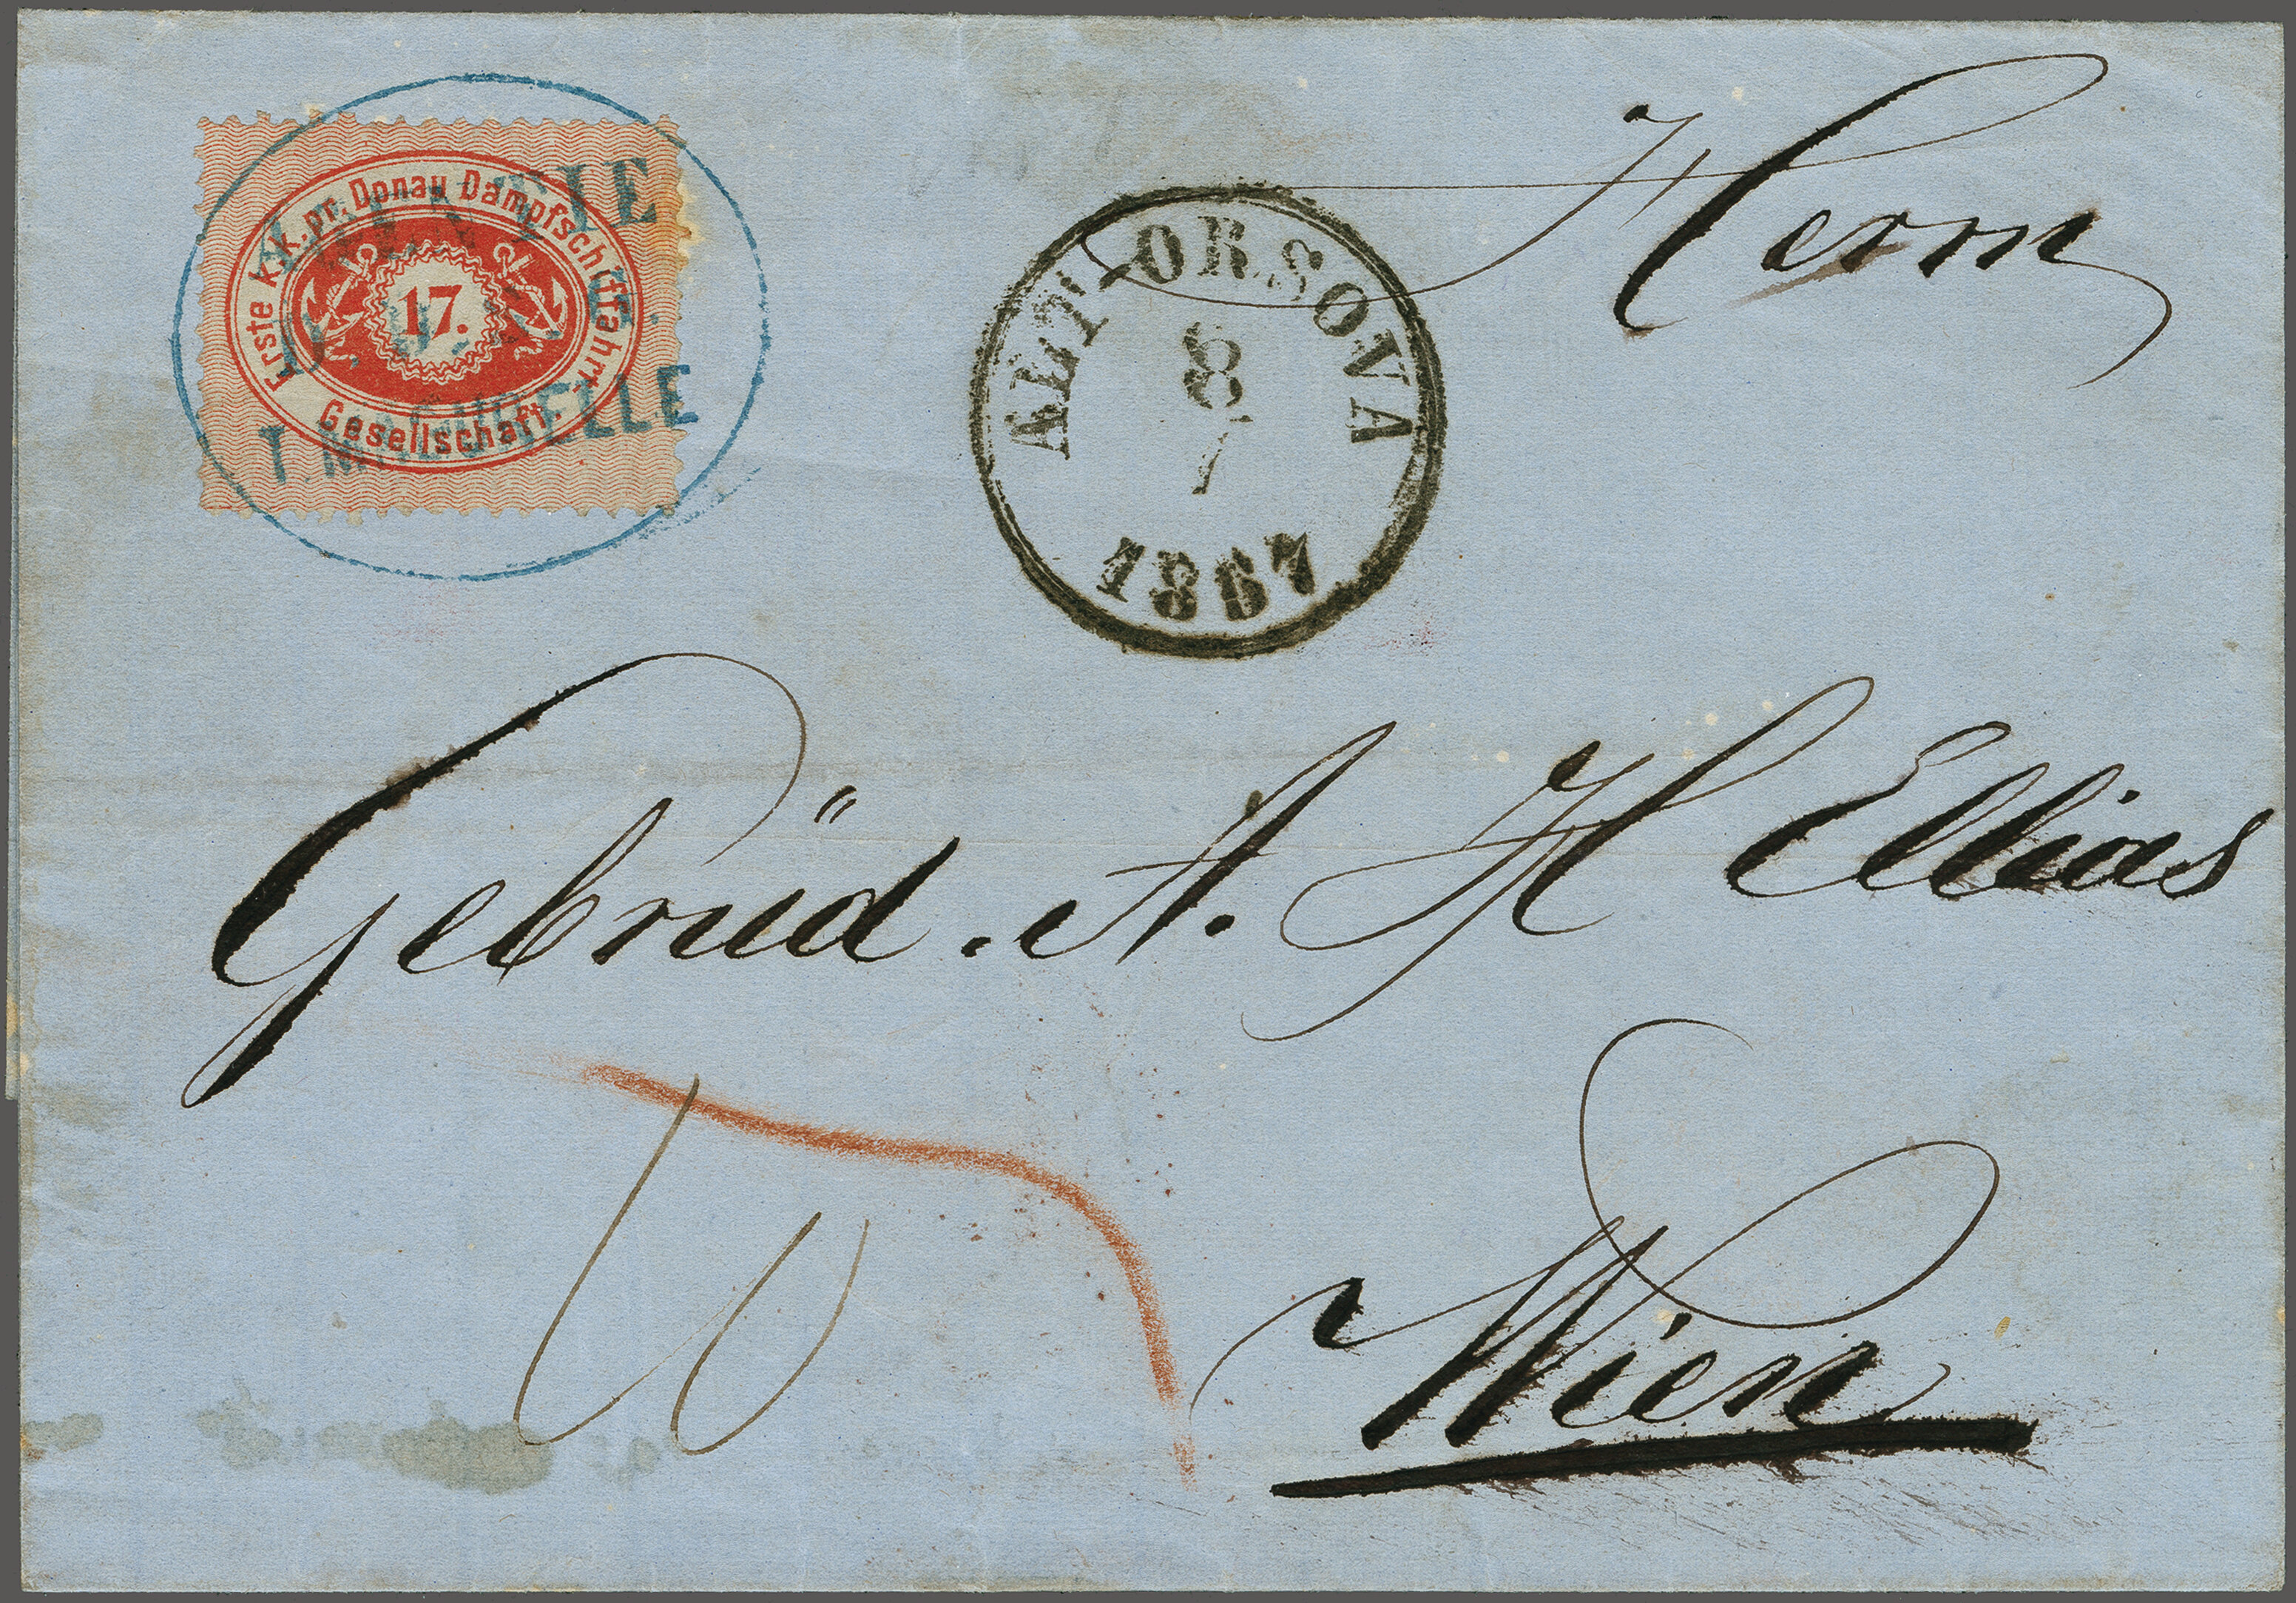 Erste k.k. pr. Donau Dampfschiffahrt
17.
Gesellschaft.
AGENTIE
T. MAGURELLE
ALT-ORSOVA
8
7
1867
Herrn
Gebrüd. A. H Ellias
Wien
10